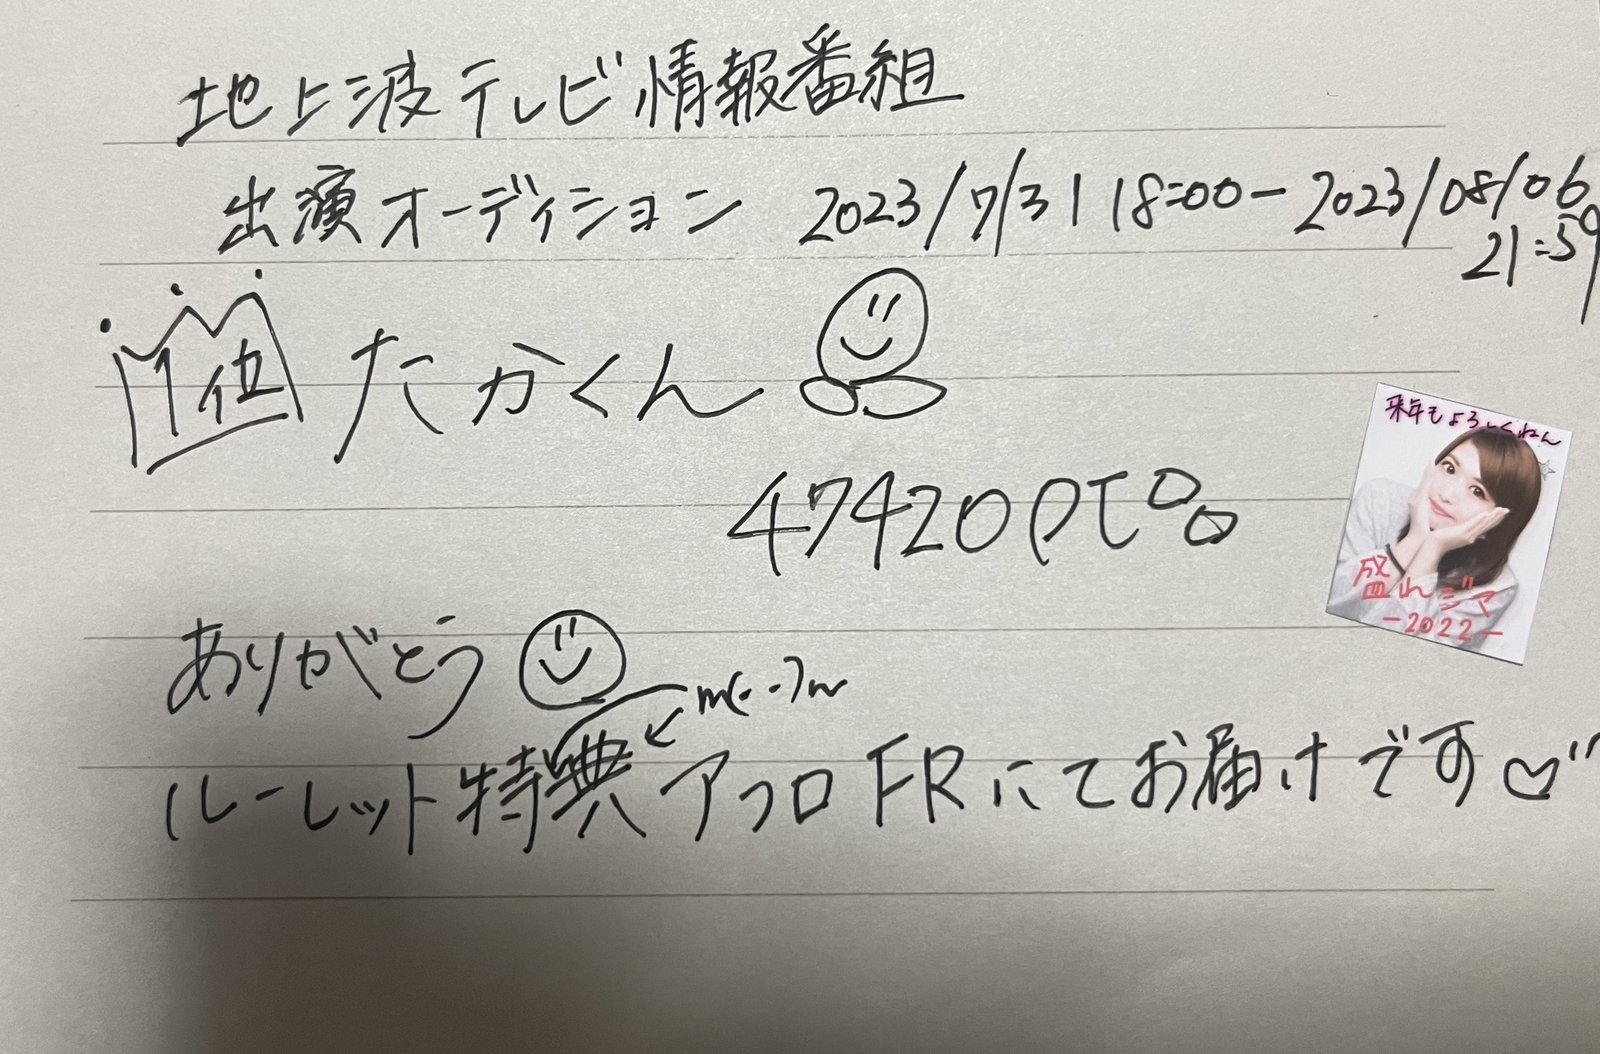 地上波テレビ情報番組
出演オーディション 2023/7/31 18:00ー2023/08/06
21:59
1位 たかくん
47420pt
ありがとう
m(..)m
ルーレット特典アフロFRにてお届けです♡
来年もよろしくねん
盛れジマ
-2022-